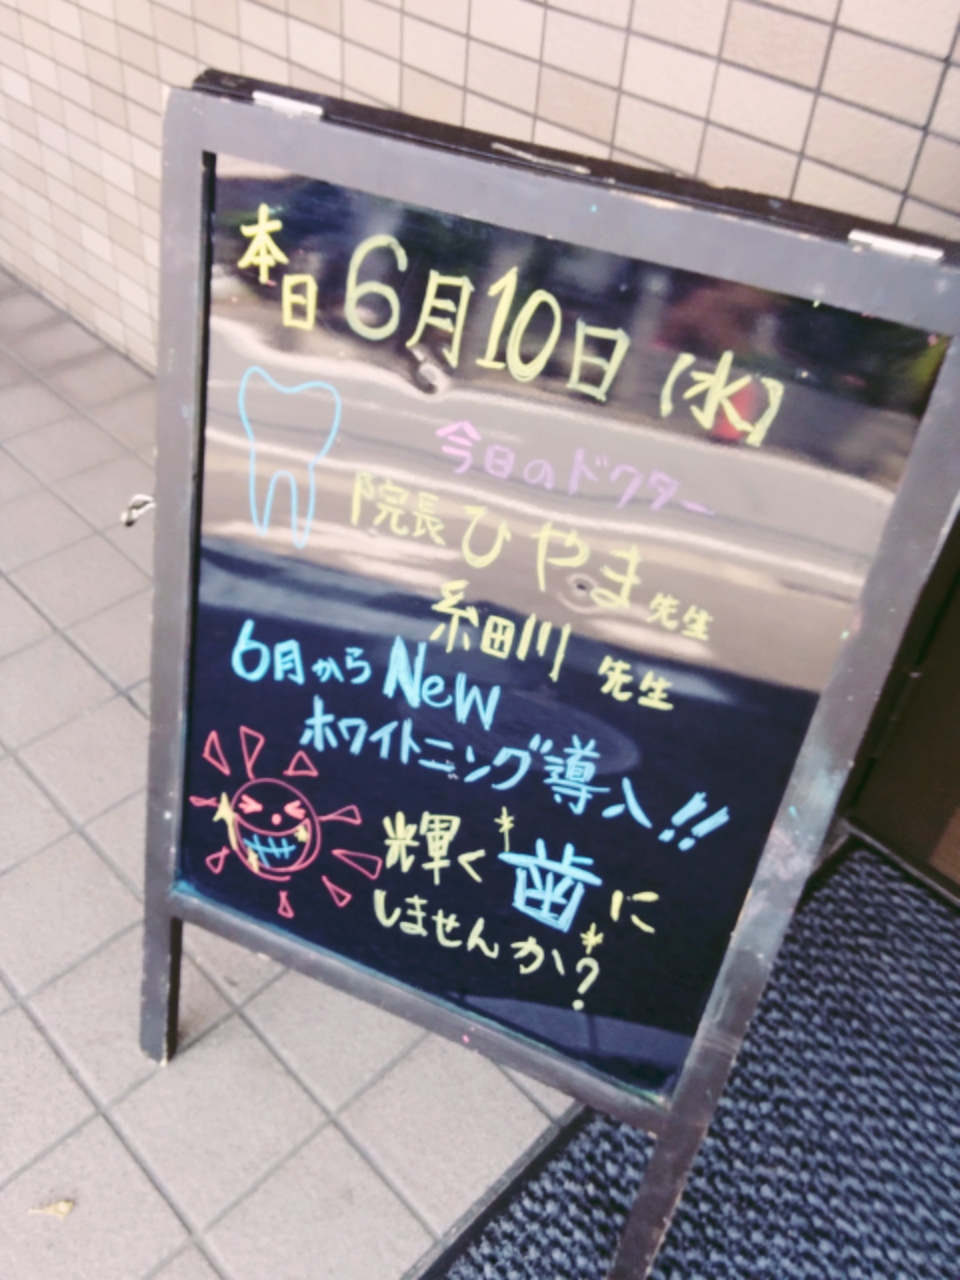 本日 6月10日(水)
今日のドクター
院長 ひやま 先生
細川 先生
6月から New
ホワイトニング導入!!
輝く歯に
しませんか?